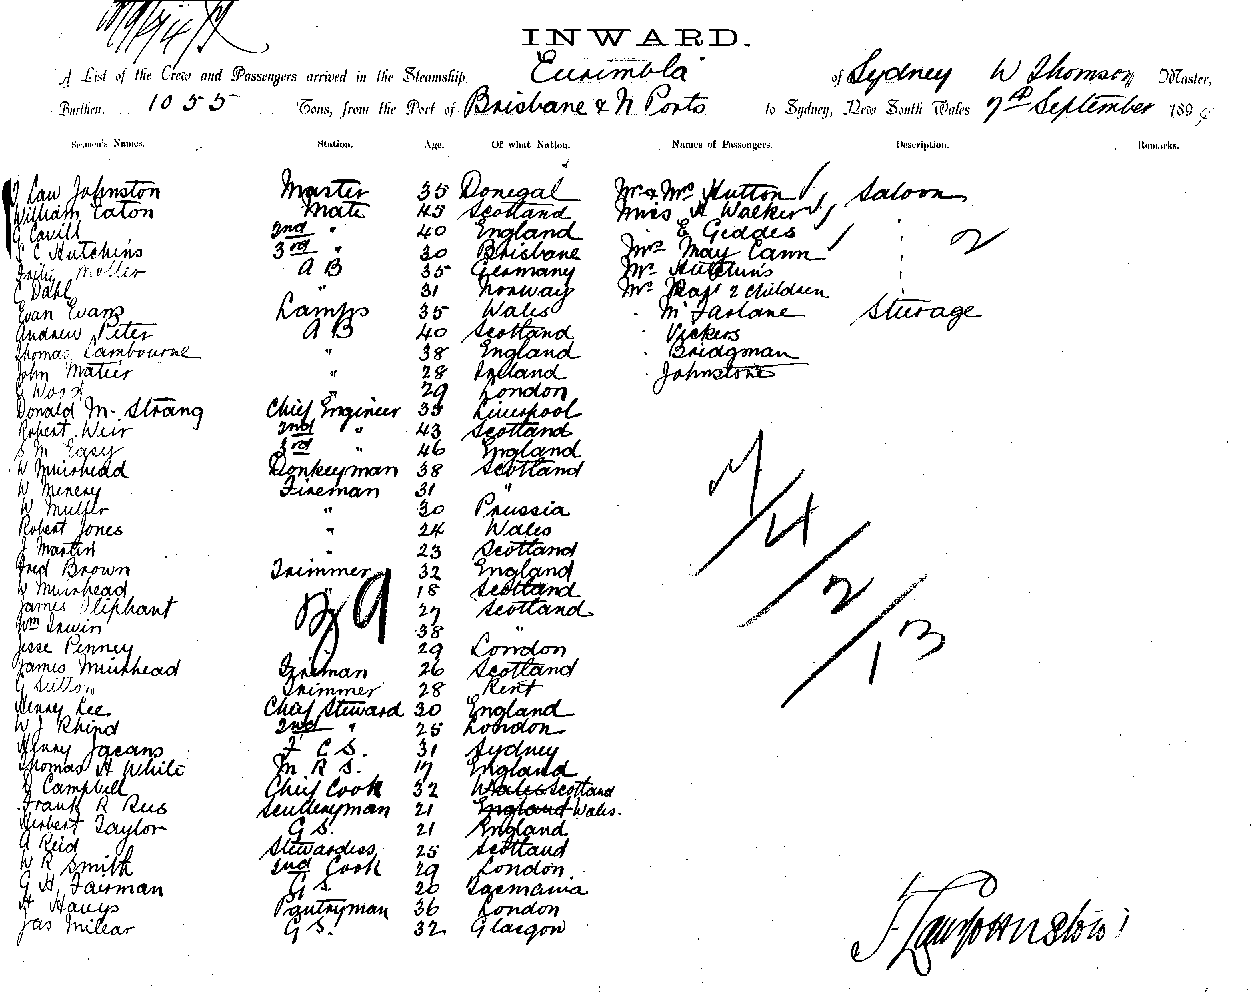 INWARD.
A List of the Crew and Passengers arrived in the Steamship Eurimbla of Sydney W Thomson Master,
Burthen 1055 Tons, from the Port of Brisbane & N Ports to Sydney, New South Wales 7th September 189
Seamen's Names. Station. Age. Of what Nation. Names of Passengers. Description. Remarks.
J Law Johnston Master 35 Donegal Mr & Mrs Hutton Saloon
William Eaton Mate 45 Scotland Miss A Walker
Cavill 2nd " 40 England E Geddes
C Hutchins 3rd " 30 Brisbane Mrs May Cann 2
Moller A B 35 Germany Mr Hutchins
C Dahl " 31 Norway Mrs 2 children
Evan Evans Lamps 35 Wales McFarlane Sturage
Andrew Peter A B 40 Scotland Vickers
Thomas Lambourne " 38 England Bridgman
John Matier " 28 Ireland Johnstone
Wood " 29 London
Donald M. Strang Chief Engineer 35 Liverpool
Robert Weir 2nd " 43 Scotland
S M Easy 3rd " 46 England
W Muirhead Donkeyman 38 Scotland
W Menery Fireman 31 "
W Muller " 30 Prussia
Robert Jones " 24 Wales
J Martin " 23 Scotland
Fred Brown Trimmer 32 England
W Muirhead " 18 Scotland
James Oliphant 27 Scotland
Wm Irwin 38 "
Jesse Penney 29 London
James Muirhead Fireman 26 Scotland
G Sutton Trimmer 28 Kent
Henry Lee Chief Steward 30 England
W J Rhind 2nd " 25 London
Henry Jacans F C S. 31 Sydney
Thomas A White M R S. 17 England
Campbell Chief Cook 32 Wales Scotland
Frank R Rees Sculleryman 21 England Wales.
Herbert Taylor G S. 21 England
A Reid Stewardess 25 Scotland
W R Smith 2nd Cook 29 London
G H Fairman G S. 20 Tasmania
H Havys Pantryman 36 London
Jas Milear G S. 32 Glasgow
9
7/4/2/13
J Law Johnston